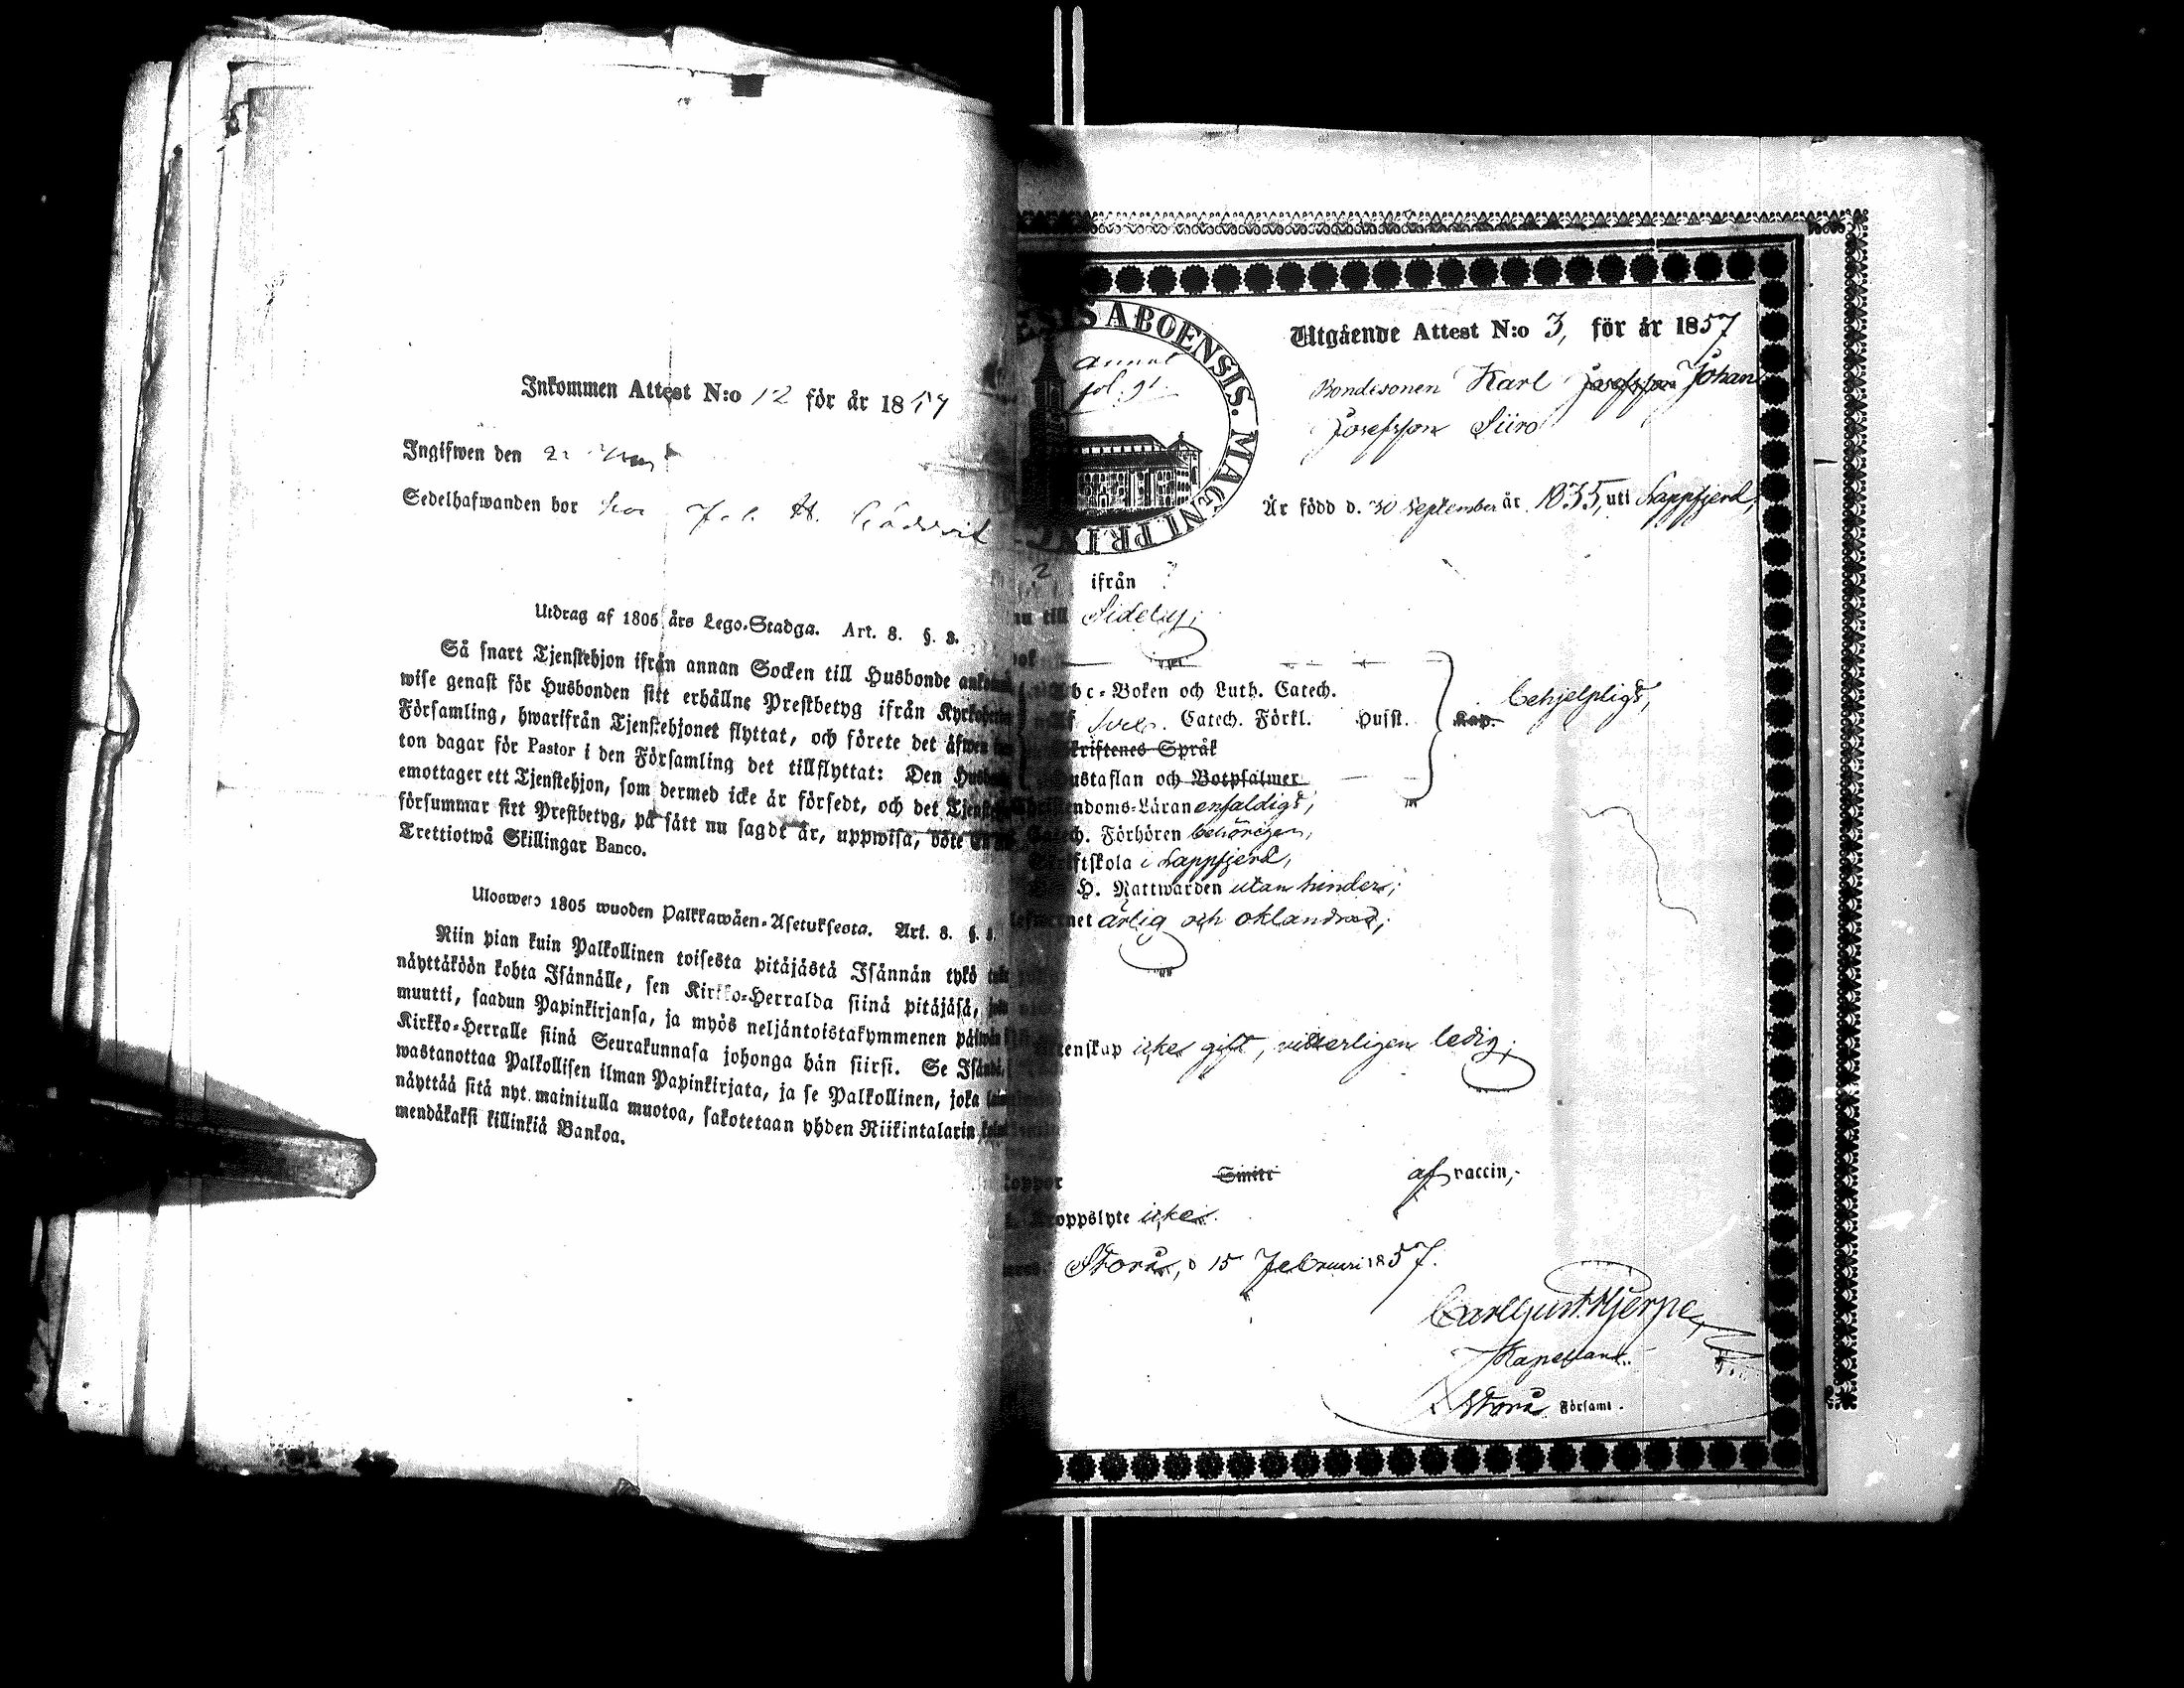 Inkommen Attest N:o 12 för år 1857
Ingifwen den
Sedelhafwanden bor hos Joh. H.
Utdrag af 1805 års Lego-Stadga. Art. 8. §. 8.
Så snart Tjenstehjon ifrån annan Socken till Husbonde
wise genast för Husbonden sitt erhållne Prestbetyg ifrån
Församling, hwarifrån Tjenstehjonet flyttat, och förete det äfwen
ton dagar för Pastor i den Församling det tillflyttat: Den
emottager ett Tjenstehjon, som dermed icke är försedt, och det
försummar sitt Prestbetyg, på sätt nu sagdt är, uppwisa, böte
Trettiotwå Skillingar Banco.
Ulosweto 1805 wuoden Palkkawäen-Asetuksesta. Art. 8. §. 8.
Niin pian kuin Palkollinen toisesta pitäjästä Isännän tykö
näyttäköön kohta Isännälle, sen Kirkko-Herralda siinä pitäjäsä,
muutti, saadun Papinkirjansa, ja myös neljäntoistakymmenen
Kirkko-Herralle siinä Seurakunnasa johonga hän siirsi. Se
wastanottaa Palkollisen ilman Papinkirjata, ja se Palkollinen, joka
näyttää sitä nyt mainitulla muotoa, sakotetaan yhden Riikintalarin
mendäkaksi killinkiä Bankoa.
ABOENSIS. MAGNI PRIN
Annat
fol. 91
Utgående Attest N:o 3, för år 1857
Bondesonen Karl Josefsson Johan
Josefsson Siiro
Är född d. 30 September år 1835, uti Lappfjerd,
ifrån
nu till Sideby;
Abc-Boken och Luth. Catech.
Catech. Förkl. Hufst. Kap. behjelpligt,
Skriftenes Språk
Hustaflan och Botpsalmer
Christendoms-Läran enfaldigt,
Catech. Förhören behörigen,
Skriftskola i Lappfjerd,
H. Nattwarden utan hinder;
lefwernet ärlig och oklandrad;
Äktenskap icke gift, vitterligen ledig;
koppor Smitt af vaccin;
Kroppslyte icke.
Storå, d 15 Februari 1857.
Carl Gust. Hjerpe,
Kapellan i
Storå Församl.